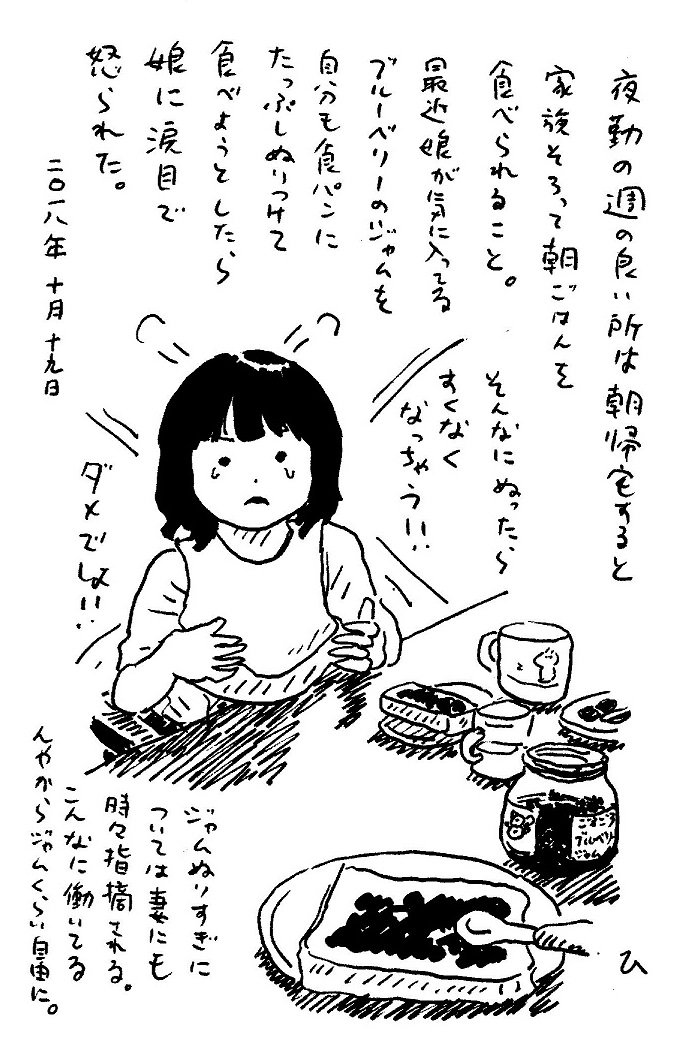 夜勤の週の良い所は朝帰宅すると
家族そろって朝ごはんを
食べられること。
最近娘が気に入ってる
ブルーベリーのジャムを
自分も食パンに
たっぷしぬりつけて
食べようとしたら
娘に涙目で
怒られた。
二〇一八年 十月十九日
そんなにぬったら
すくなく
なっちゃう!!
ダメでしょ!!
ごろごろ
ブルーベリー
ジャム
ジャムぬりすぎに
ついては妻にも
時々指摘される。
こんなに働いてる
んやからジャムくらい自由に。
ひ